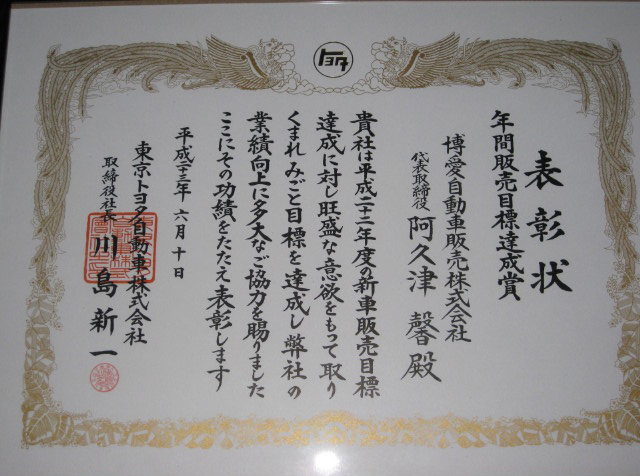 トヨタ
表彰状
年間販売目標達成賞
博愛自動車販売株式会社
代表取締役 阿久津 馨 殿
貴社は平成二十二年度の新車販売目標
達成に対し旺盛な意欲をもって取り
くまれみごと目標を達成し弊社の
業績向上に多大なご協力を賜りました
ここにその功績をたたえ表彰します
平成二十三年 六月 十日
東京トヨタ自動車株式会社
取締役社長 川島新一